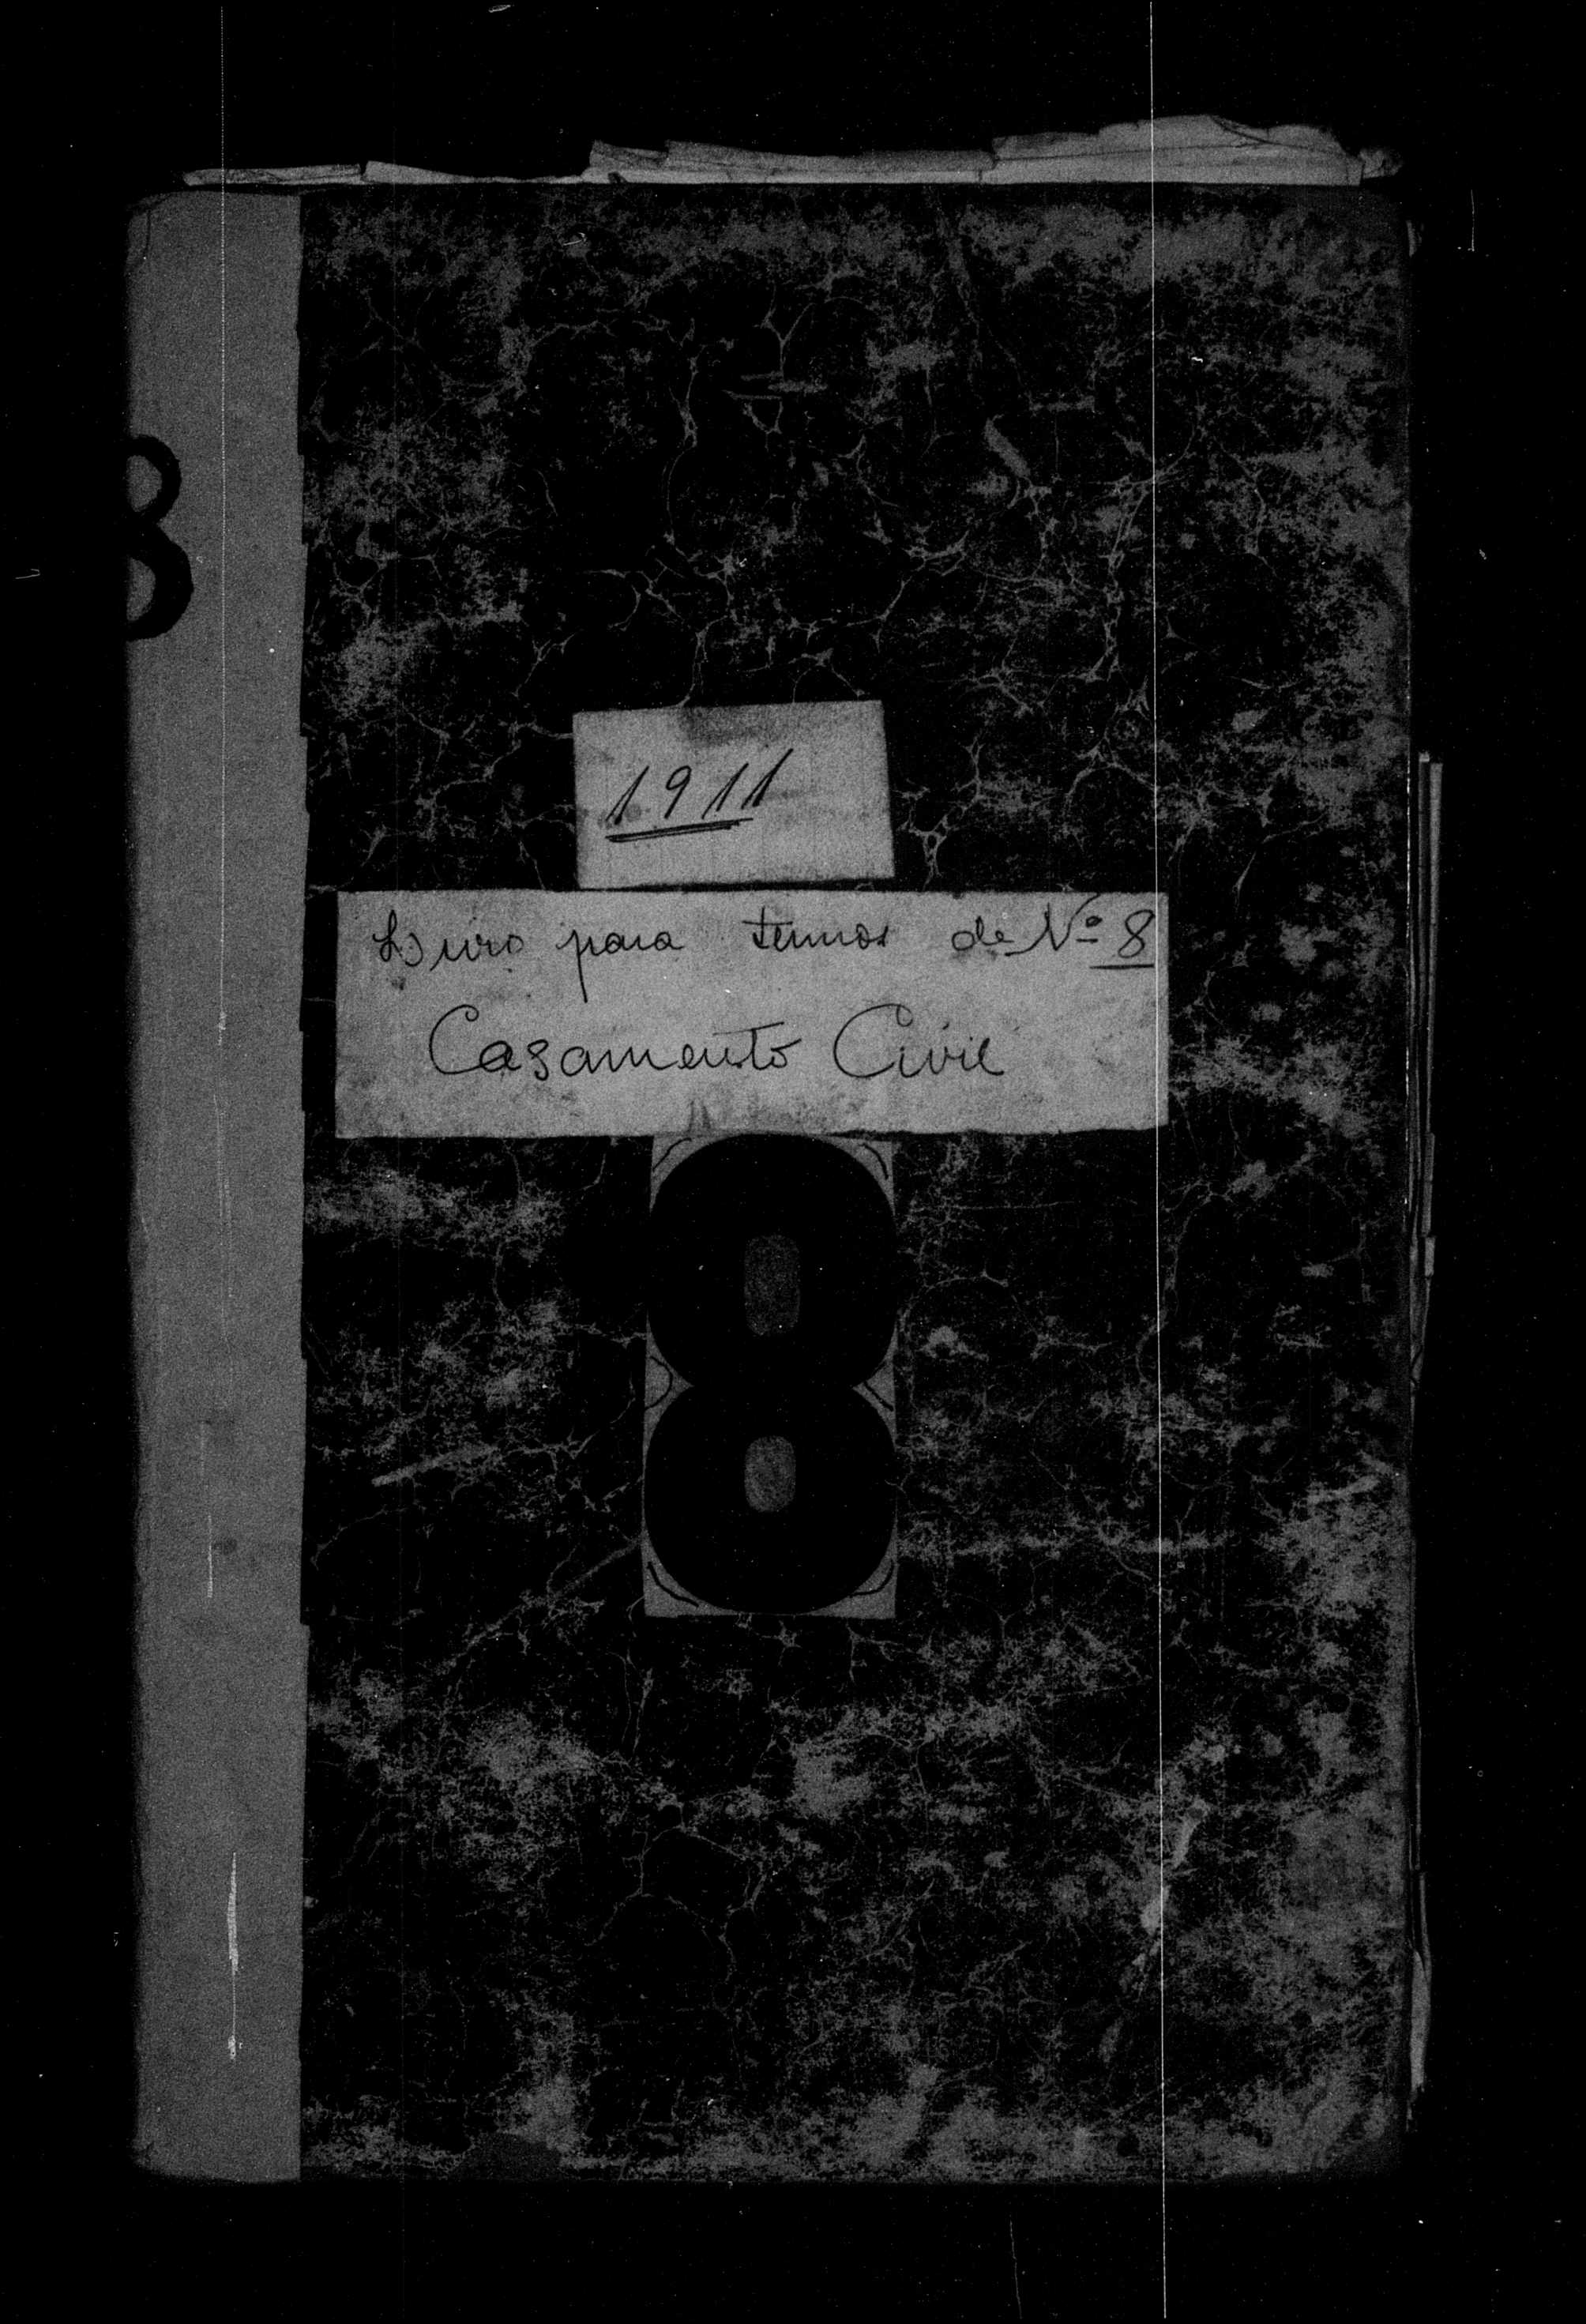 8
1911
Livro para termos de Nº 8
Casamento Civil
8